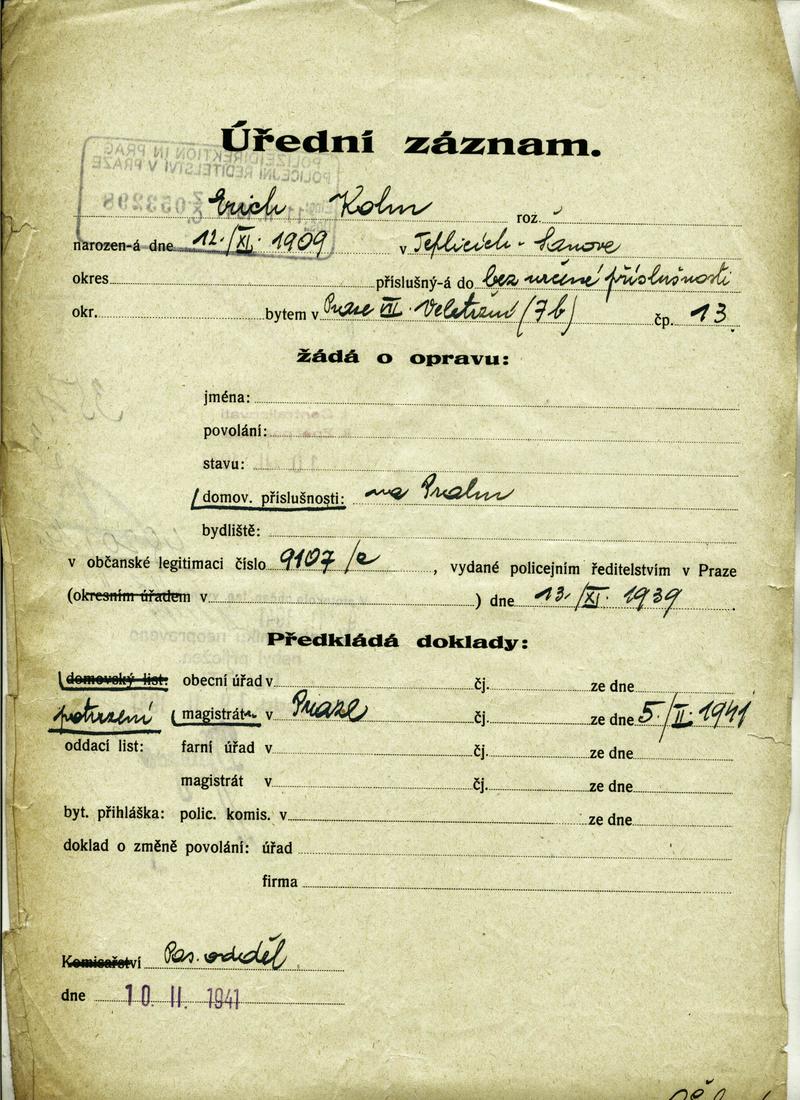 Úřední záznam.
Erich Kohn roz.
narozen-á dne 12./XI. 1909 v Teplicích - Šanově
okres příslušný-á do bez určené příslušnosti
okr. bytem v Praze VII. Veletržní (7b) čp. 13
žádá o opravu:
jména:
povolání:
stavu:
domov. příslušnosti: na Prahu
bydliště:
v občanské legitimaci číslo 9107/e, vydané policejním ředitelstvím v Praze
(okresním úřadem v ) dne 13./XI. 1939.
Předkládá doklady:
domovský list: obecní úřad v čj. ze dne
potvrzení magistrát v Praze čj. ze dne 5./II. 1941
oddací list: farní úřad v čj. ze dne
magistrát v čj. ze dne
byt. přihláška: polic. komis. v ze dne
doklad o změně povolání: úřad
firma
Komisařství Pas. odděl
dne 10. II. 1941
POLIZEIDIREKTION IN PRAG
POLICEJNÍ ŘEDITELSTVÍ V PRAZE
053298